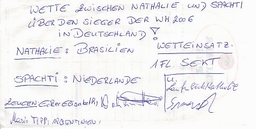 WETTE ZWISCHEN NATHALIE UND SPACHTI
ÜBER DEN SIEGER DER WM 2006
IN DEUTSCHLAND!
NATHALIE: BRASILIEN
WETTEINSATZ:
1 FL SEKT
SPACHTI: NIEDERLANDE
ZEUGEN
TIPP: ARGENTINIEN!